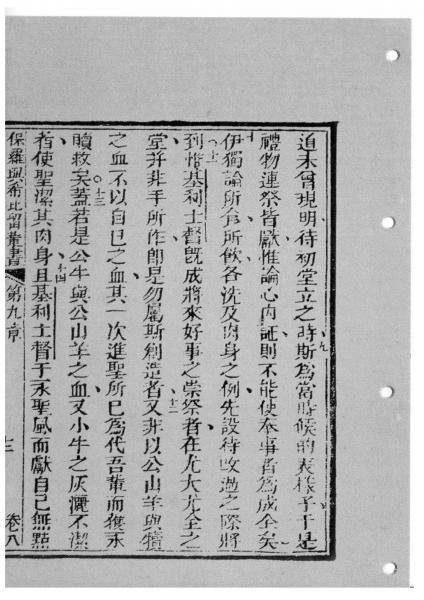 道未曾現明待初堂立之時斯為當時候的表樣子于是
禮物連祭皆獻惟論心內証則不能使奉事者為成全矣
伊獨論所食所飲各洗及肉身之例先設待改過之際將
到惟基利士督既成將來好事之崇祭者在尤大尤全之
堂并非手所作即是勿屬斯創造者又非以公山羊與犢
之血不以自己之血其一次進聖所已為代吾輩而獲永
贖救矣蓋若是公牛與公山羊之血又小牛之灰灑不潔
者使聖潔其肉身且基利士督于永聖風而獻自己無點
保羅與希比留輩書 第九章 三 卷八
九
十
十一
十二
十三
十四